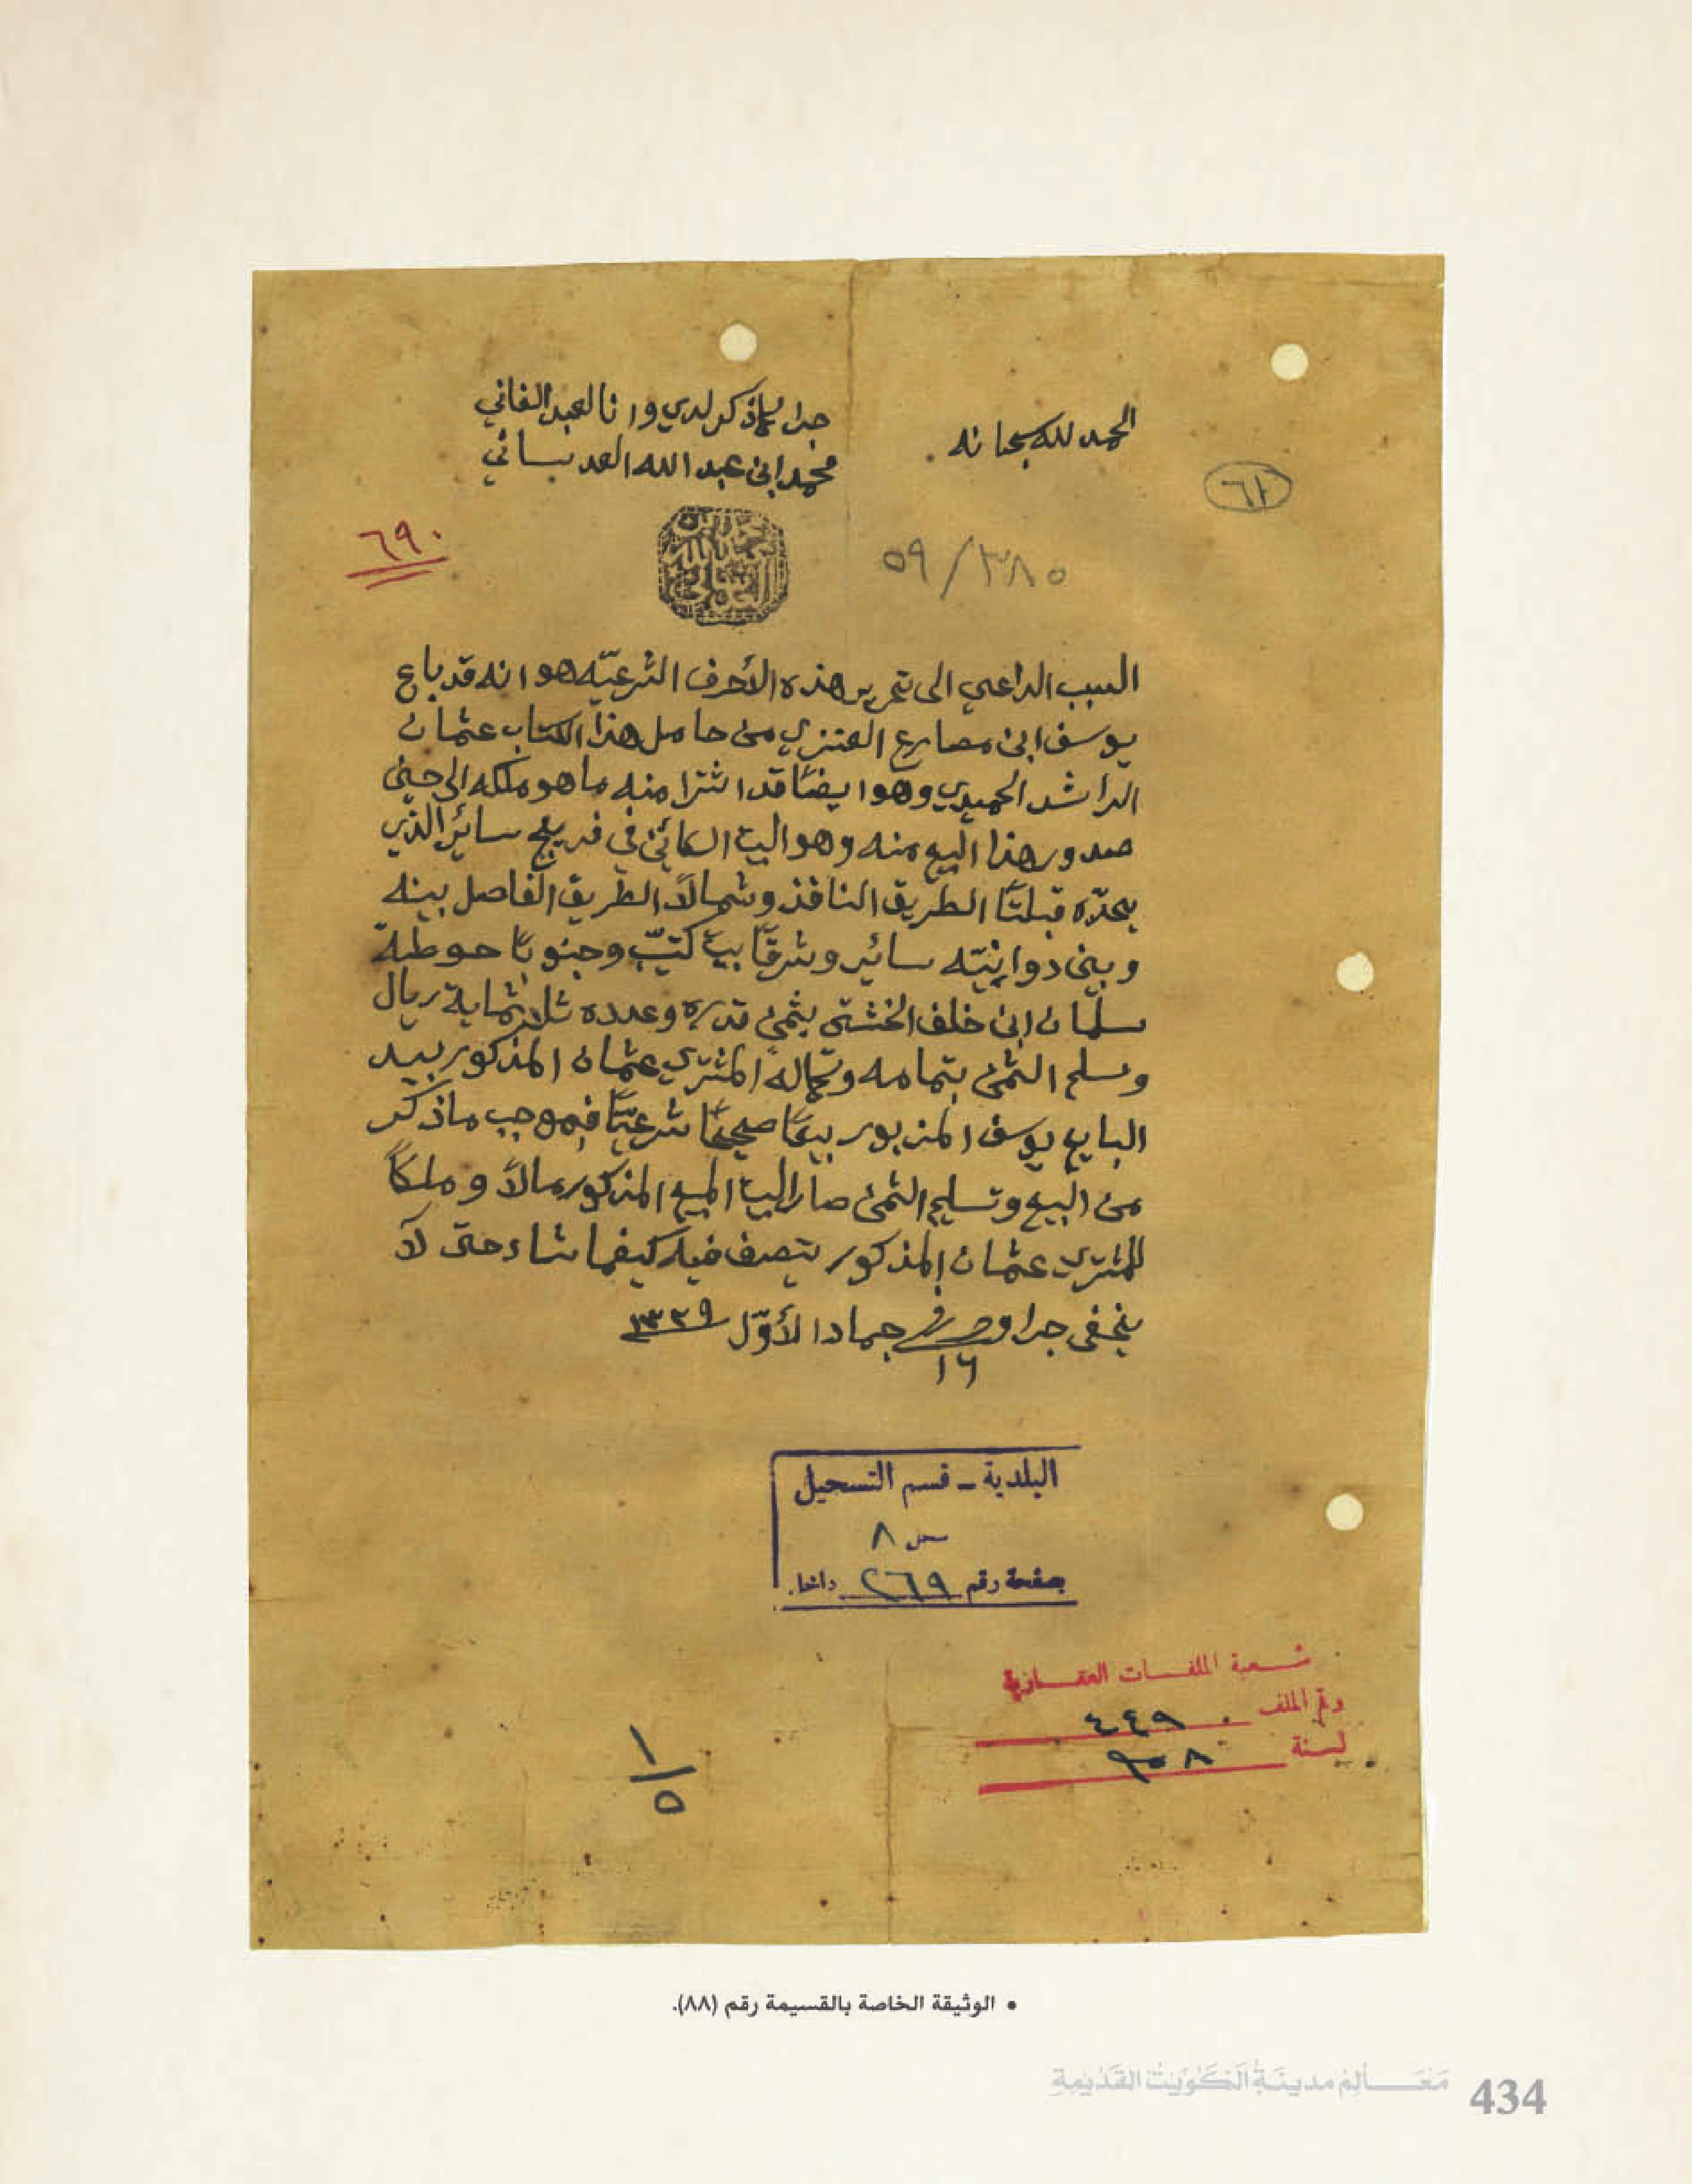 الحمد لله سبحانه .
جرا ماذكر لدي وانا العبد الفاني
محمد ابن عبد الله العدساني
٦١
٦٩٠
٥٩/٣٨٥
محمد بن عبد الله العدساني
السبب الداعي الى تحرير هذه الأحرف الشرعيّه هو انه قد باع
يوسف ابن مصارع العنزي من حامل هذا الكتاب عثمان
الراشد الحميدي وهو ايضًا قد اشترا منه ما هو ملكه الى حين
صدور هذا البيع منه وهو البيت الكائن في فريج سائر الذي
يحدّه قبلتًا الطريق النافذ وشمالاً الطريق الفاصل بينه
وبين دوانيّه سائر وشرقًا بيت كتيّب وجنوبًا حوطة
سلمان ابن خلف الخشتي بثمن قدره وعدده ثلاثماية ريال
وسلم الثمن بتمامه وكماله المشتري عثمان المذكور بيد
البايع يوسف المزبور بيعًا صحيحًا شرعيًّا فبموجب ماذكر
من البيع وتسليم الثمن صار البيت المبيع المذكور مالاً وملكاً
للمشتري عثمان المذكور يتصرف فيه كيفما شاء حتى لا
يخفى جرا وحرر في ١٦ جمادا الأوّل ١٣٢٩
البلدية - قسم التسجيل
سجل ٨
صفحة رقم ٢٦٩
شعبة الملفات العقارية
رقم الملف ٤٤٩
لسنة ٩٥٨
١/٥
• الوثيقة الخاصة بالقسيمة رقم (٨٨).
مَعَالِمُ مَدينَةِ الكُوَيْتْ القَدْيمِة
434